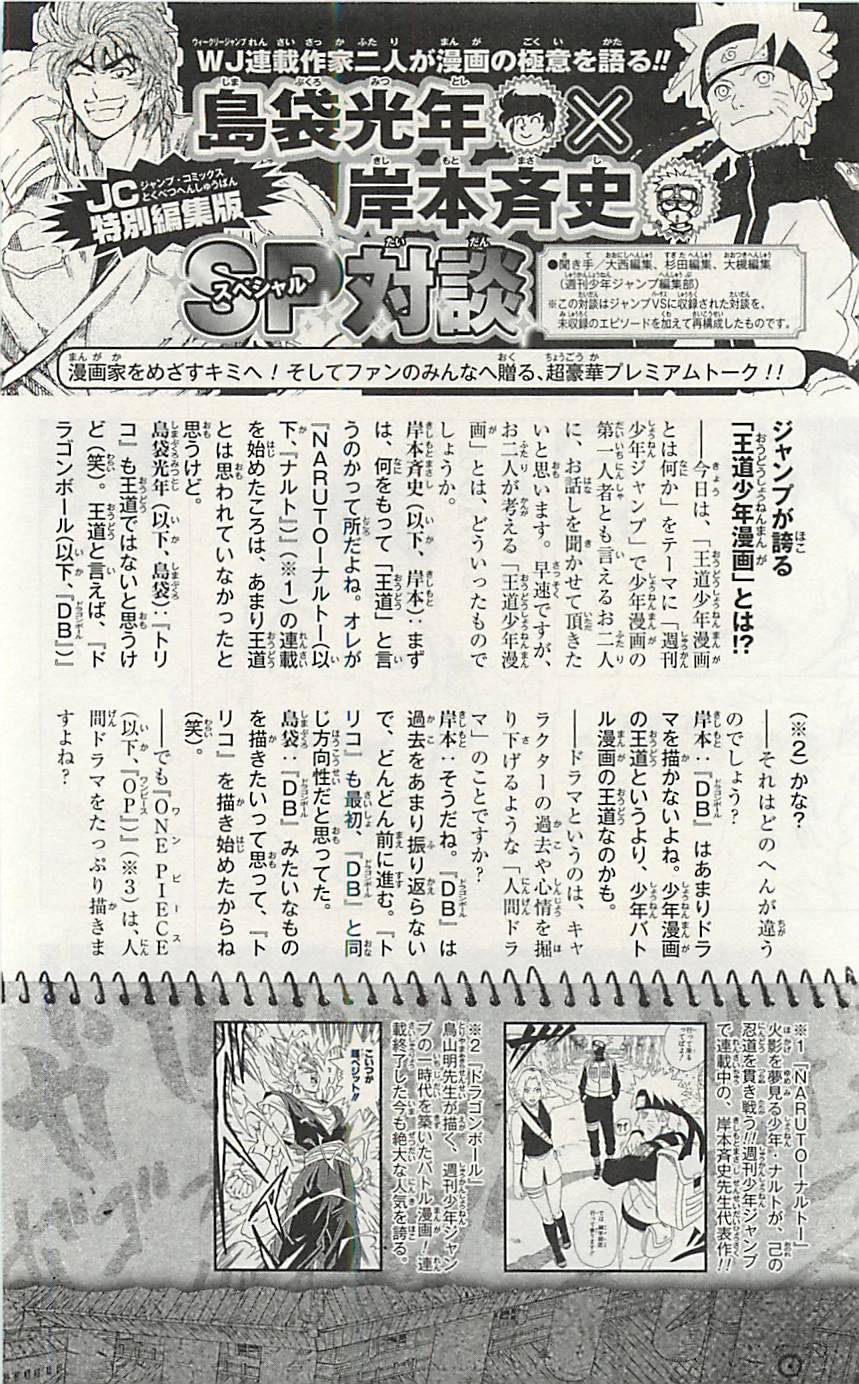 WJ連載作家二人が漫画の極意を語る!!
島袋光年×
岸本斉史
JCジャンプ・コミックス
特別編集版
SPスペシャル対談
●聞き手/大西編集、杉田編集、大槻編集
(週刊少年ジャンプ編集部)
※この対談はジャンプVSに収録された対談を、
未収録のエピソードを加えて再構成したものです。
漫画家をめざすキミへ!そしてファンのみんなへ贈る、超豪華プレミアムトーク!!
ジャンプが誇る
「王道少年漫画」とは!?
――今日は、「王道少年漫画
とは何か」をテーマに「週刊
少年ジャンプ」で少年漫画の
第一人者とも言えるお二人
に、お話しを聞かせて頂きた
いと思います。早速ですが、
お二人が考える「王道少年漫
画」とは、どういったもので
しょうか。
岸本斉史(以下、岸本):まず
は、何をもって「王道」と言
うのかって所だよね。オレが
『NARUTO―ナルト―(以
下、『ナルト』)』(※1)の連載
を始めたころは、あまり王道
とは思われていなかったと
思うけど。
島袋光年(以下、島袋):『トリ
コ』も王道ではないと思うけ
ど(笑)。王道と言えば、『ド
ラゴンボール(以下、『DB』)』
(※2)かな?
――それはどのへんが違う
のでしょう?
岸本:『DB』はあまりドラ
マを描かないよね。少年漫画
の王道というより、少年バト
ル漫画の王道なのかも。
――ドラマというのは、キャ
ラクターの過去や心情を掘
り下げるような「人間ドラ
マ」のことですか?
岸本:そうだね。『DB』は
過去をあまり振り返らない
で、どんどん前に進む。『ト
リコ』も最初、『DB』と同
じ方向性だと思ってた。
島袋:『DB』みたいなもの
を描きたいって思って、『ト
リコ』を描き始めたからね
(笑)。
――でも『ONE PIECE
(以下、『OP』)』(※3)は、人
間ドラマをたっぷり描きま
すよね?
※1「NARUTO―ナルト―」
火影を夢見る少年・ナルトが、己の
忍道を貫き戦う!!週刊少年ジャンプ
で連載中の、岸本斉史先生代表作!!
※2「ドラゴンボール」
鳥山明先生が描く、週刊少年ジャン
プの一時代を築いたバトル漫画!連
載終了した今も絶大な人気を誇る。
こいつが
超ベジット!!
4